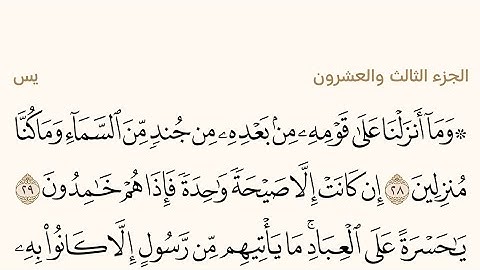 الجزء الثالث والعشرون يس
۞ وَمَآ أَنزَلْنَا عَلَىٰ قَوْمِهِۦ مِنۢ بَعْدِهِۦ مِن جُندٍ مِّنَ ٱلسَّمَآءِ وَمَا كُنَّا
مُنزِلِينَ ٢٨ إِن كَانَتْ إِلَّا صَيْحَةً وَٰحِدَةً فَإِذَا هُمْ خَـٰمِدُونَ ٢٩
يَـٰحَسْرَةً عَلَى ٱلْعِبَادِ ۚ مَا يَأْتِيهِم مِّن رَّسُولٍ إِلَّا كَانُوا۟ بِهِۦ